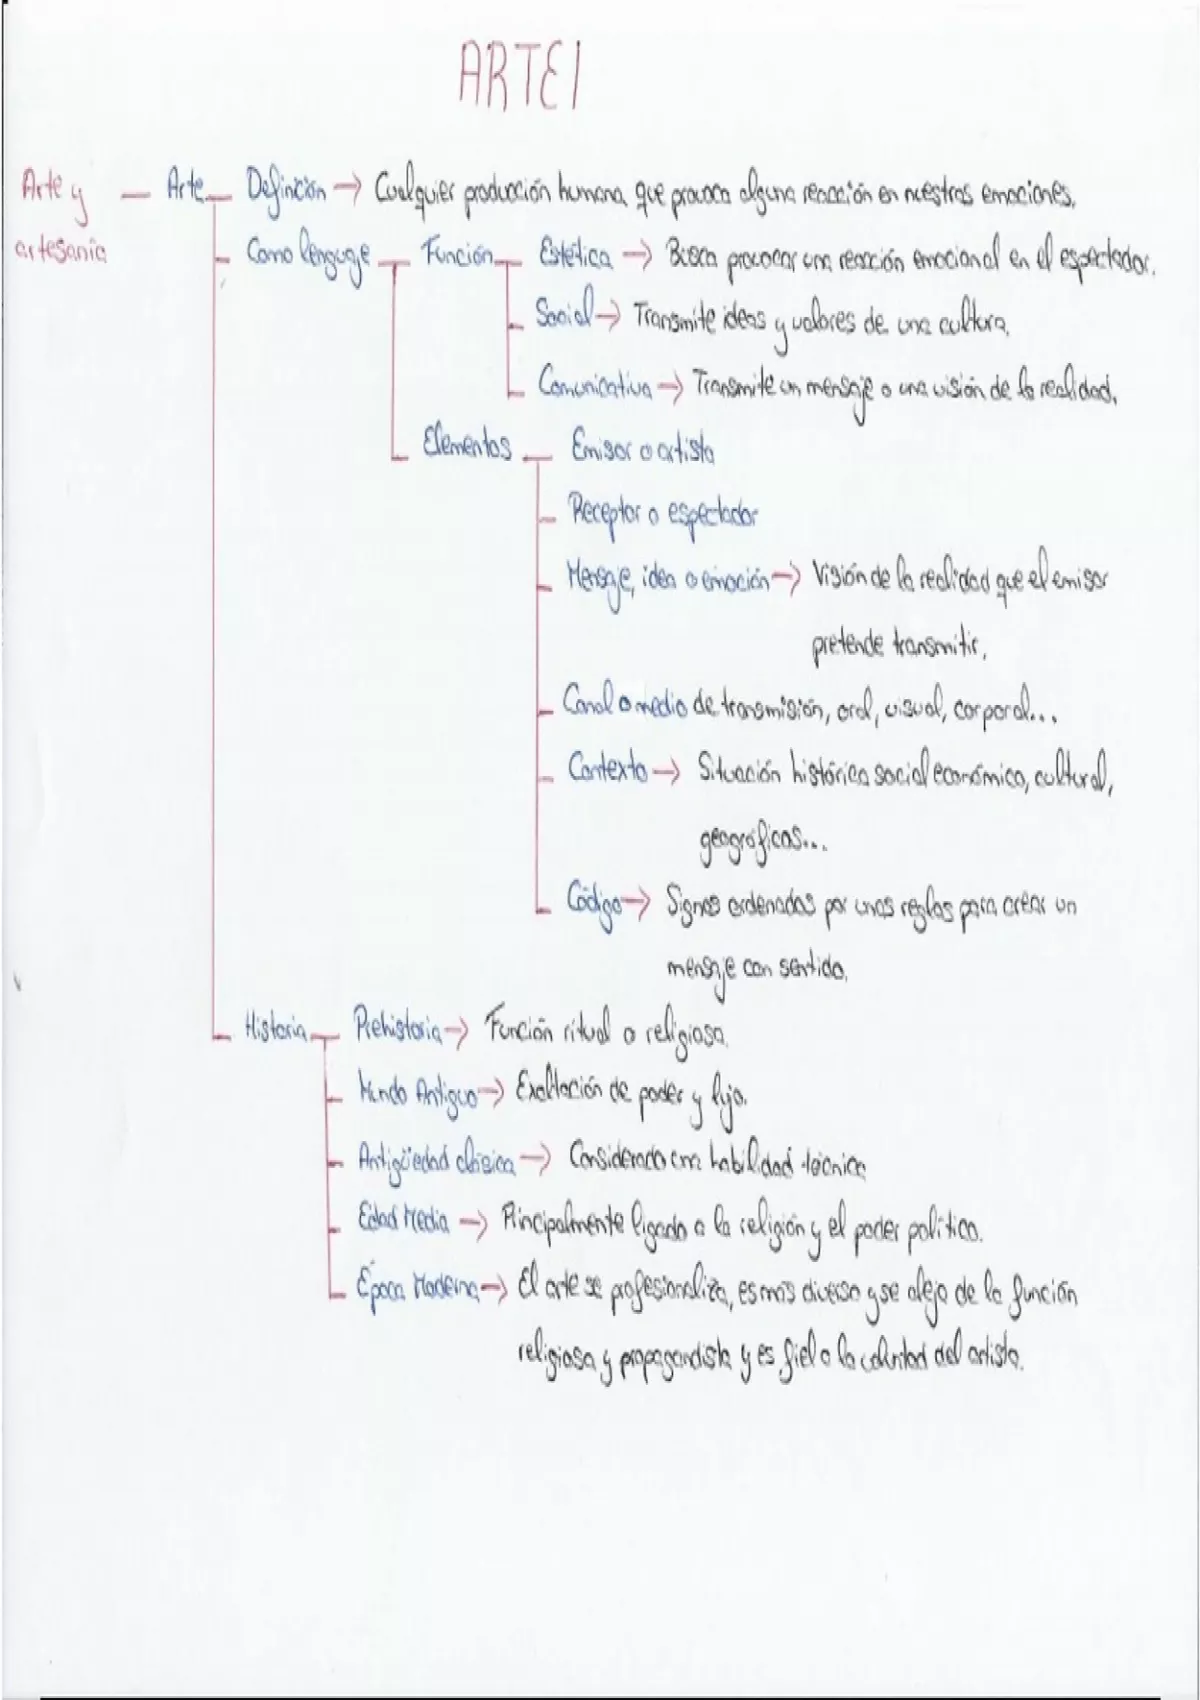 ARTE I
Arte y artesanía
Arte
Definición → Cualquier producción humana que provoca alguna reacción en nuestras emociones.
Como lenguaje
Función
Estética → Busca provocar una reacción emocional en el espectador.
Social → Transmite ideas y valores de una cultura.
Comunicativa → Transmite un mensaje o una visión de la realidad.
Elementos
Emisor o artista
Receptor o espectador
Mensaje, idea o emoción → Visión de la realidad que el emisor
pretende transmitir.
Canal o medio de transmisión, oral, visual, corporal...
Contexto → Situación histórica social económica, cultural,
geográficas...
Código → Signos ordenados por unas reglas para crear un
mensaje con sentido.
Historia
Prehistoria → Función ritual o religiosa.
Mundo Antiguo → Exaltación de poder y lujo.
Antigüedad clásica → Considerado como habilidad técnica
Edad Media → Principalmente ligado a la religión y el poder político.
Época Moderna → El arte se profesionaliza, es más diverso y se aleja de la función
religiosa y propagandista y es fiel a la voluntad del artista.